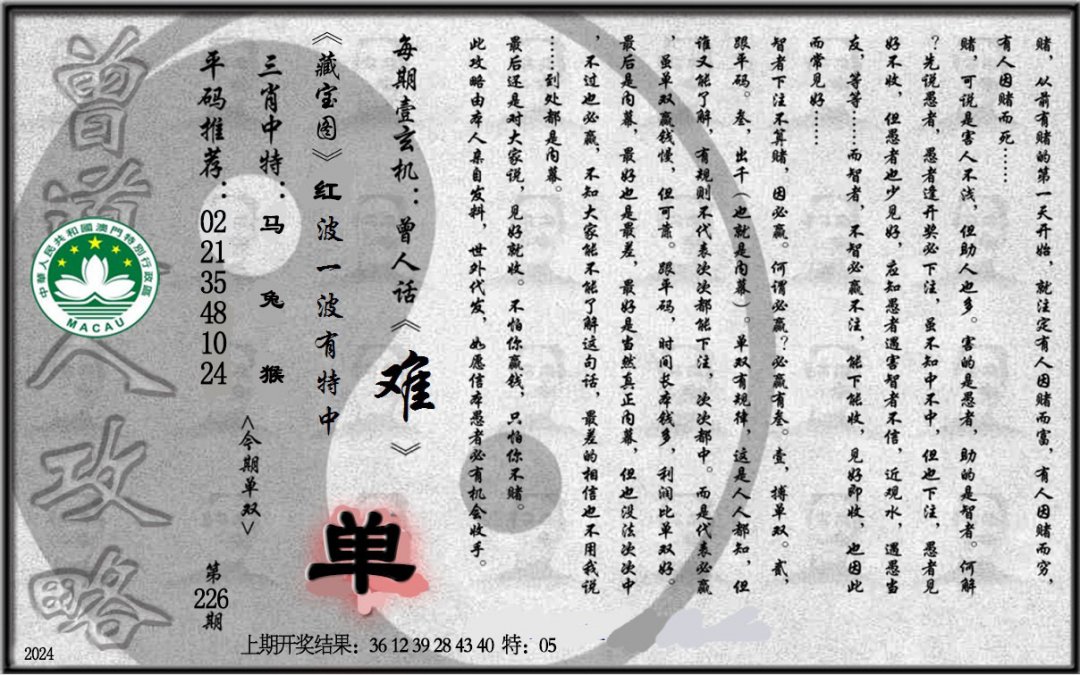 赌，从前有赌的第一天开始，就注定有人因赌而富，有人因赌而穷，
有人因赌而死……
赌，可说是害人不浅，但助人也多。害的是愚者，助的是智者。何解
？先说愚者，愚者逢开奖必下注，虽不知中不中，但也下注，愚者见
好不收，但愚者也少见好，应知愚者遇害智者不信，近观水，遇愚当
友，等等……而智者，不智必赢不注，能下能收，见好即收，也因此
而常见好……
智者下注不算赌，因必赢。何谓必赢？必赢有叁。壹，搏单双。贰，
跟平码。叁，出千（也就是内幕）。单双有规律，这是人人都知，但
谁又能了解，有规则不代表次次都能下注，次次都中。而是代表必赢
，虽单双赢钱慢，但可靠。跟平码，时间长本钱多，利润比单双好。
最后是内幕，最好也是最差，最好是当然真正内幕，但也没法次次中
，不过也必赢，不知大家能不能了解这句话，最差的相信也不用我说
……到处都是内幕。
最后还是对大家说，见好就收。不怕你赢钱，只怕你不赌。
此攻略由本人亲自发料，世外代发，如愿信本愚者必有机会收手。
每期壹玄机：曾人话《难》
《藏宝图》红波一波有特中
单
三肖中特：马 兔 猴
<今期单双>
平码推荐：02 21 35 48 10 24
第226期
曾道人攻略
中華人民共和國澳門特別行政區
MACAU
上期开奖结果：36 12 39 28 43 40 特：05
2024